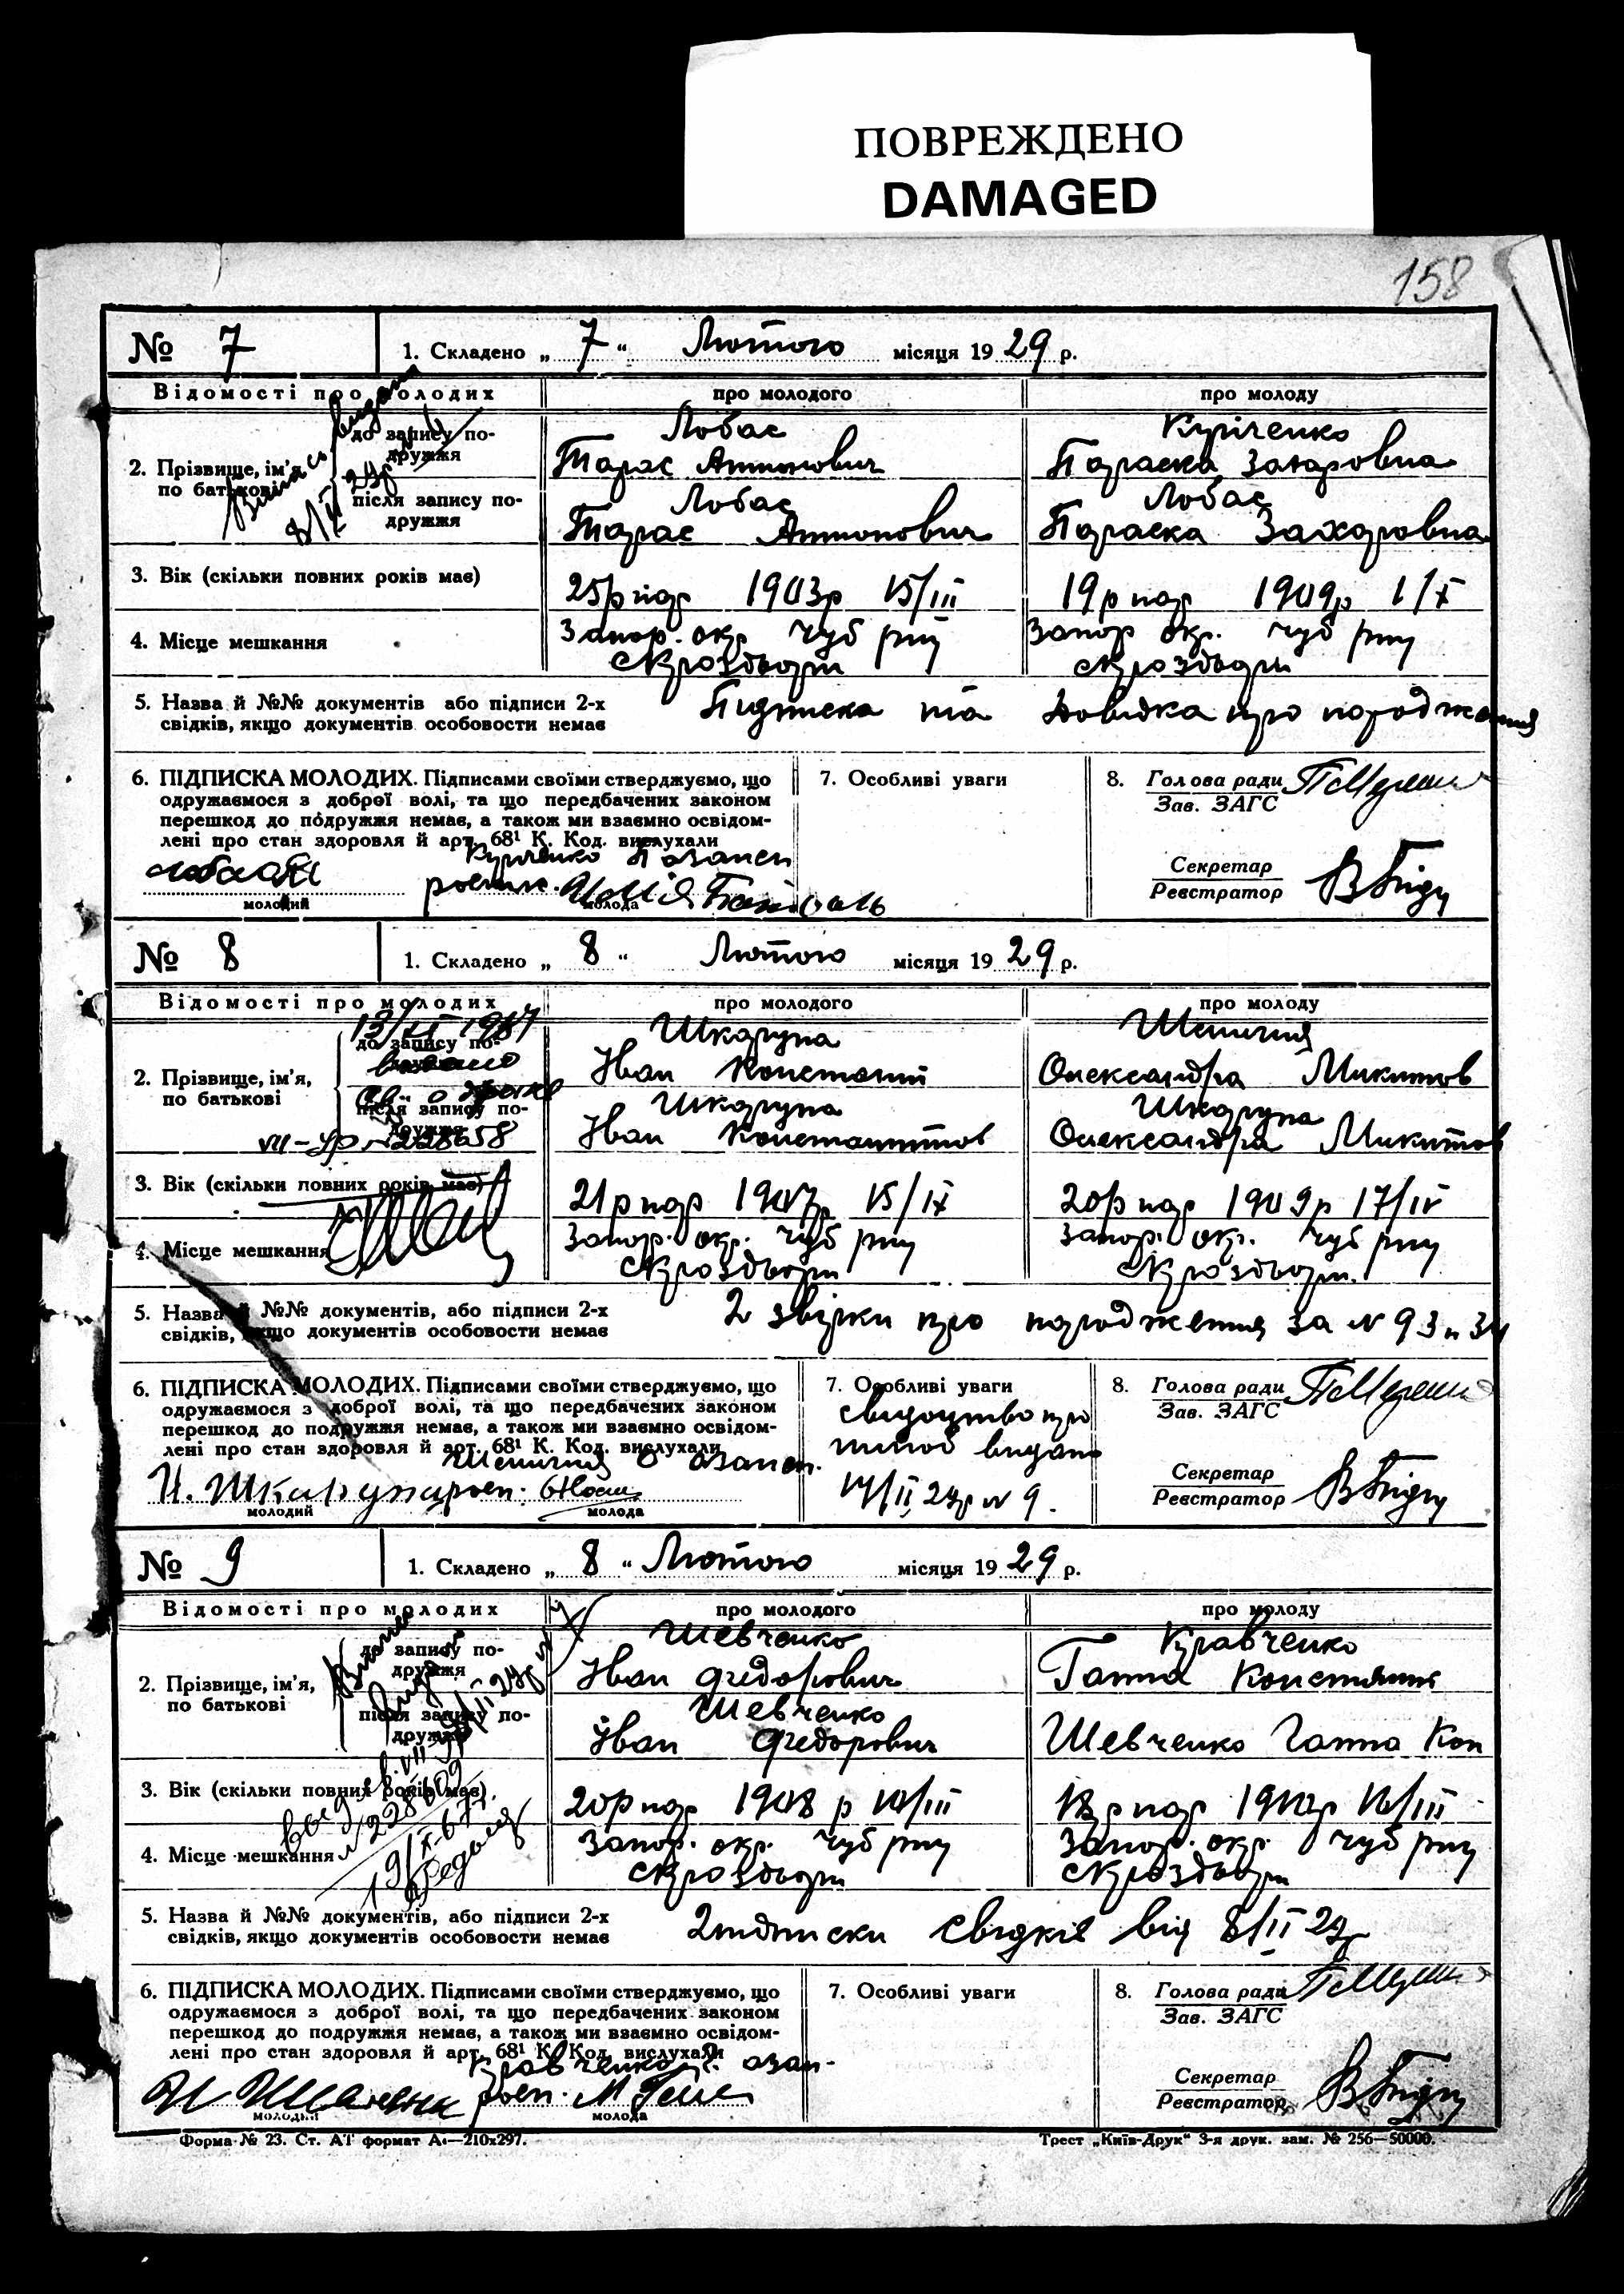 ПОВРЕЖДЕНО
DAMAGED
158
№ 7 1. Складено „ 7 “ Лютого місяця 19 29 р.
Відомості про молодих про молодого про молоду
2. Прізвище, ім'я, по батькові
до запису подружжя
Лобас Тарас Антонович
Куріченко Параска Захаровна
після запису подружжя
Лобас Тарас Антонович
Лобас Параска Захаровна
3. Вік (скільки повних років має) 25р нар 1903р 15/III 19р нар 1909р 1/X
4. Місце мешкання Запор. окр. чуб рну Запор окр. чуб рну
5. Назва й №№ документів або підписи 2-х Підписка та довідка про народження
свідків, якщо документів особовости немає
6. ПІДПИСКА МОЛОДИХ. Підписами своїми стверджуємо, що
одружаємося з доброї волі, та що передбачених законом
перешкод до подружжя немає, а також ми взаємно освідом-
лені про стан здоровля й арт. 68¹ К. Код. вислухали
Куріченко П
молодий молода
7. Особливі уваги
8. Голова ради
Зав. ЗАГС
Секретар
Реєстратор
№ 8 1. Складено „ 8 “ Лютого місяця 19 29 р.
Відомості про молодих про молодого про молоду
2. Прізвище, ім'я, по батькові
до запису подружжя
Шкарупа Іван Константин
Олександра Микитов
після запису подружжя
Шкарупа Іван Константинов
Шкарупа Олександра Микитов
3. Вік (скільки повних років має) 21р нар 1907р 15/IX 20р нар 1909р 17/IV
4. Місце мешкання Запор. окр. чуб рну Запор. окр. чуб рну
5. Назва й №№ документів, або підписи 2-х 2 звірки про народження за N 93 и 34
свідків, якщо документів особовости немає
6. ПІДПИСКА МОЛОДИХ. Підписами своїми стверджуємо, що
одружаємося з доброї волі, та що передбачених законом
перешкод до подружжя немає, а також ми взаємно освідом-
лені про стан здоровля й арт. 68¹ К. Код. вислухали
И. Шкарупа
молодий молода
7. Особливі уваги
свидоцтво про
шлюб видано
14/II 29р N 9.
8. Голова ради
Зав. ЗАГС
Секретар
Реєстратор
№ 9 1. Складено „ 8 “ Лютого місяця 19 29 р.
Відомості про молодих про молодого про молоду
2. Прізвище, ім'я, по батькові
до запису подружжя
Шевченко Іван Федорович
Кравченко Ганна Константин
після запису подружжя
Шевченко Іван Федорович
Шевченко Ганна Кон
3. Вік (скільки повних років має) 20р нар 1908 р 10/III 18р нар 1910р 16/III
4. Місце мешкання Запор. окр. чуб рну Запор. окр. чуб рну
5. Назва й №№ документів, або підписи 2-х 2 підписки свідків від 8/II 29р
свідків, якщо документів особовости немає
6. ПІДПИСКА МОЛОДИХ. Підписами своїми стверджуємо, що
одружаємося з доброї волі, та що передбачених законом
перешкод до подружжя немає, а також ми взаємно освідом-
лені про стан здоровля й арт. 68¹ К. Код. вислухали
Кравченко
молодий молода
7. Особливі уваги
8. Голова ради
Зав. ЗАГС
Секретар
Реєстратор
Форма № 23. Ст. АТ формат А₄—210х297. Трест „Київ-Друк“ 3-я друк. зам. № 256—50000.